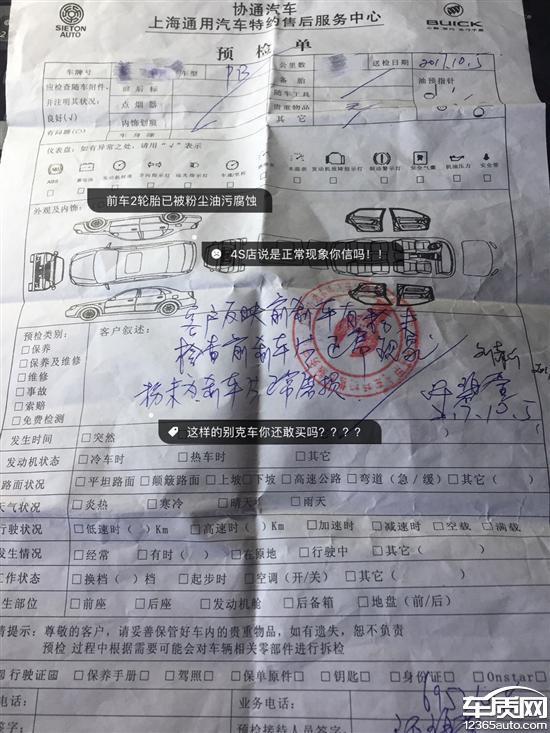 SIETON AUTO
协通汽车
上海通用汽车特约售后服务中心
BUICK
预检单
车牌号 车型 公里数 送检日期 2017.10.5
应检查随车附件, 前后标 备胎 油预指针
并注明其状况: 点烟器 随车工具
良好(√) 内饰划痕 贵重物品
其它
仪表盘: 如有异常之处, 请用“√”表示
ABS
机油压力 安全带
外观及内饰:
前车2轮胎已被粉尘油污腐蚀
4S店说是正常现象你信吗!!
预检类别: 客户叙述:
□保养
□保养及维修
□维修
□事故
□索赔
□免费检测
客户反映前刹车有粉尘
检查前刹车片正常现象
粉末为刹车片正常磨损
2017.10.5
这样的别克车你还敢买吗????
发生时间 □突然
发动机状态 □冷车时 □热车时 □其它(
路面状况 □平坦路面 □颠簸路面 □上坡□下坡 □高速公路 □弯道(急/缓) □其它(
天气状况 □炎热 □寒冷 □晴天 □雨天
行驶状况 □低速时( )Km □高速时( )Km □加速时 □减速时 □空载 □满载
发生情况 □经常 □有时( ) □在原地 □行驶中 □其它( )
工作状态 □换档( )档 □起步时 □空调(开/关) □其它( )
生部位 □前座 □后座 □发动机舱 □后备箱 □地盘(前/后)
请提示: 尊敬的客户, 请妥善保管好车内的贵重物品, 如有遗失, 恕不负责
预检 过程中根据需要可能会对车辆相关零部件进行拆检
行驶证 □保养手册 □驾照 □保单原件 □钥匙 □身份证 □Onstar
电话: 业务电话:
签字: 预检接待人员签字:
车质网
12365auto.com